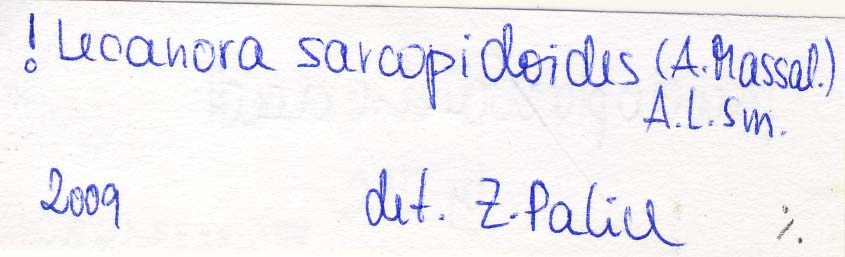 ! Lecanora sarcopidoides (A. Massal.)
A.L. Sm.
2009 det. Z. Palice
%.